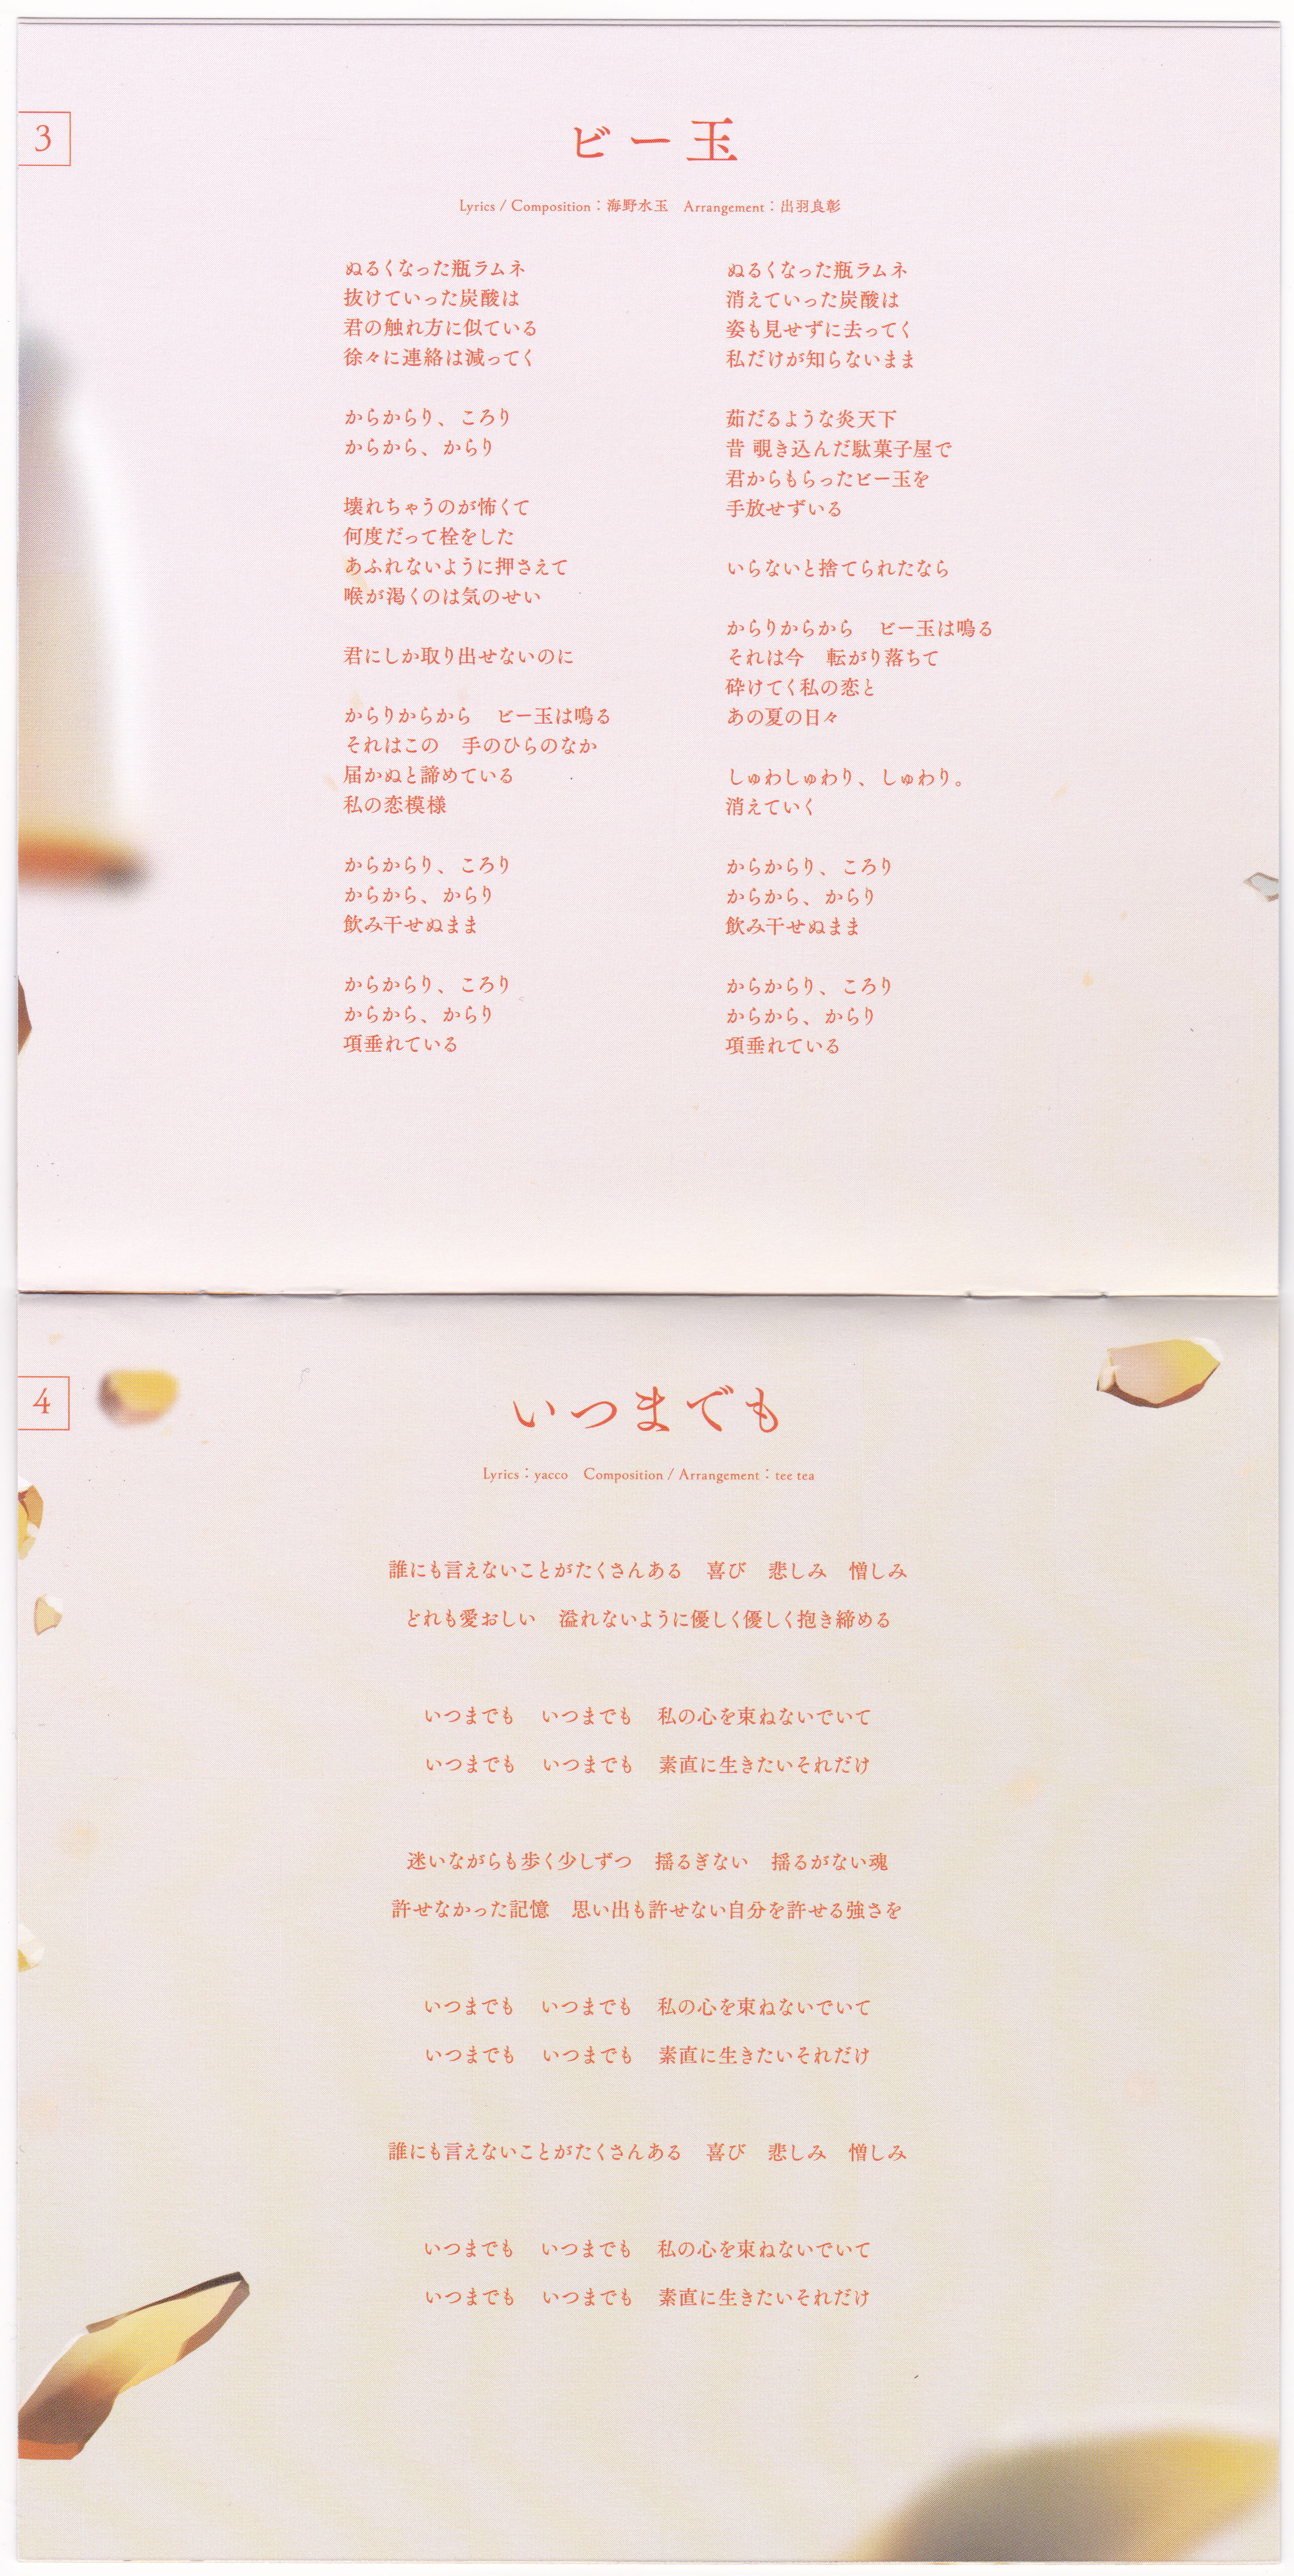 3
ビー玉
Lyrics / Composition：海野水玉　Arrangement：出羽良彰
ぬるくなった瓶ラムネ
抜けていった炭酸は
君の触れ方に似ている
徐々に連絡は減ってく
からからり、ころり
からから、からり
壊れちゃうのが怖くて
何度だって栓をした
あふれないように押さえて
喉が渇くのは気のせい
君にしか取り出せないのに
からりからから　ビー玉は鳴る
それはこの　手のひらのなか
届かぬと諦めている
私の恋模様
からからり、ころり
からから、からり
飲み干せぬまま
からからり、ころり
からから、からり
項垂れている
ぬるくなった瓶ラムネ
消えていった炭酸は
姿も見せずに去ってく
私だけが知らないまま
茹だるような炎天下
昔 覗き込んだ駄菓子屋で
君からもらったビー玉を
手放せずいる
いらないと捨てられたなら
からりからから　ビー玉は鳴る
それは今　転がり落ちて
砕けてく私の恋と
あの夏の日々
しゅわしゅわり、しゅわり。
消えていく
からからり、ころり
からから、からり
飲み干せぬまま
からからり、ころり
からから、からり
項垂れている
4
いつまでも
Lyrics：yacco　Composition / Arrangement：tee tea
誰にも言えないことがたくさんある　喜び　悲しみ　憎しみ
どれも愛おしい　溢れないように優しく優しく抱き締める
いつまでも　いつまでも　私の心を束ねないでいて
いつまでも　いつまでも　素直に生きたいそれだけ
迷いながらも歩く少しずつ　揺るぎない　揺るがない魂
許せなかった記憶　思い出も許せない自分を許せる強さを
いつまでも　いつまでも　私の心を束ねないでいて
いつまでも　いつまでも　素直に生きたいそれだけ
誰にも言えないことがたくさんある　喜び　悲しみ　憎しみ
いつまでも　いつまでも　私の心を束ねないでいて
いつまでも　いつまでも　素直に生きたいそれだけ